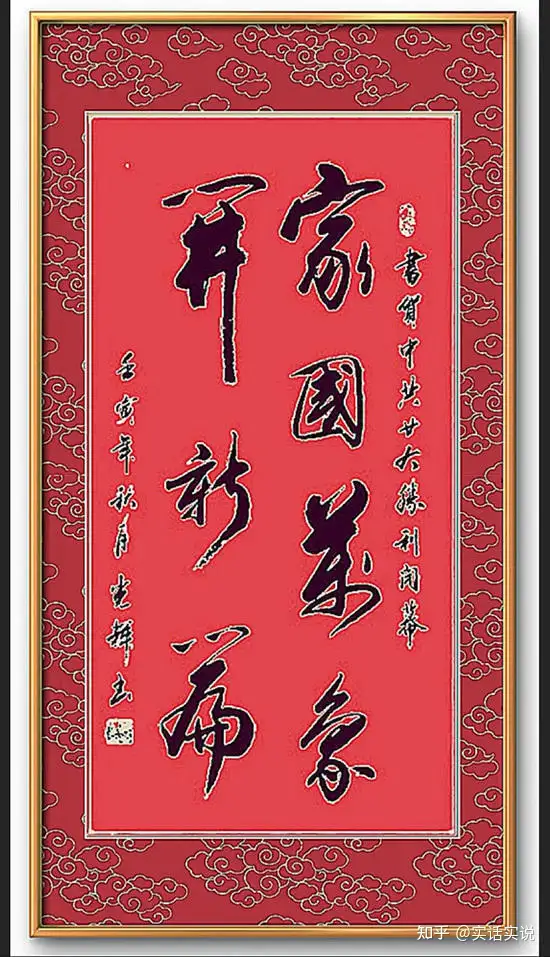 書賀中共廿大勝利闭幕
家國萬象
開新篇
壬寅年秋月光輝書
知乎 @实话实说